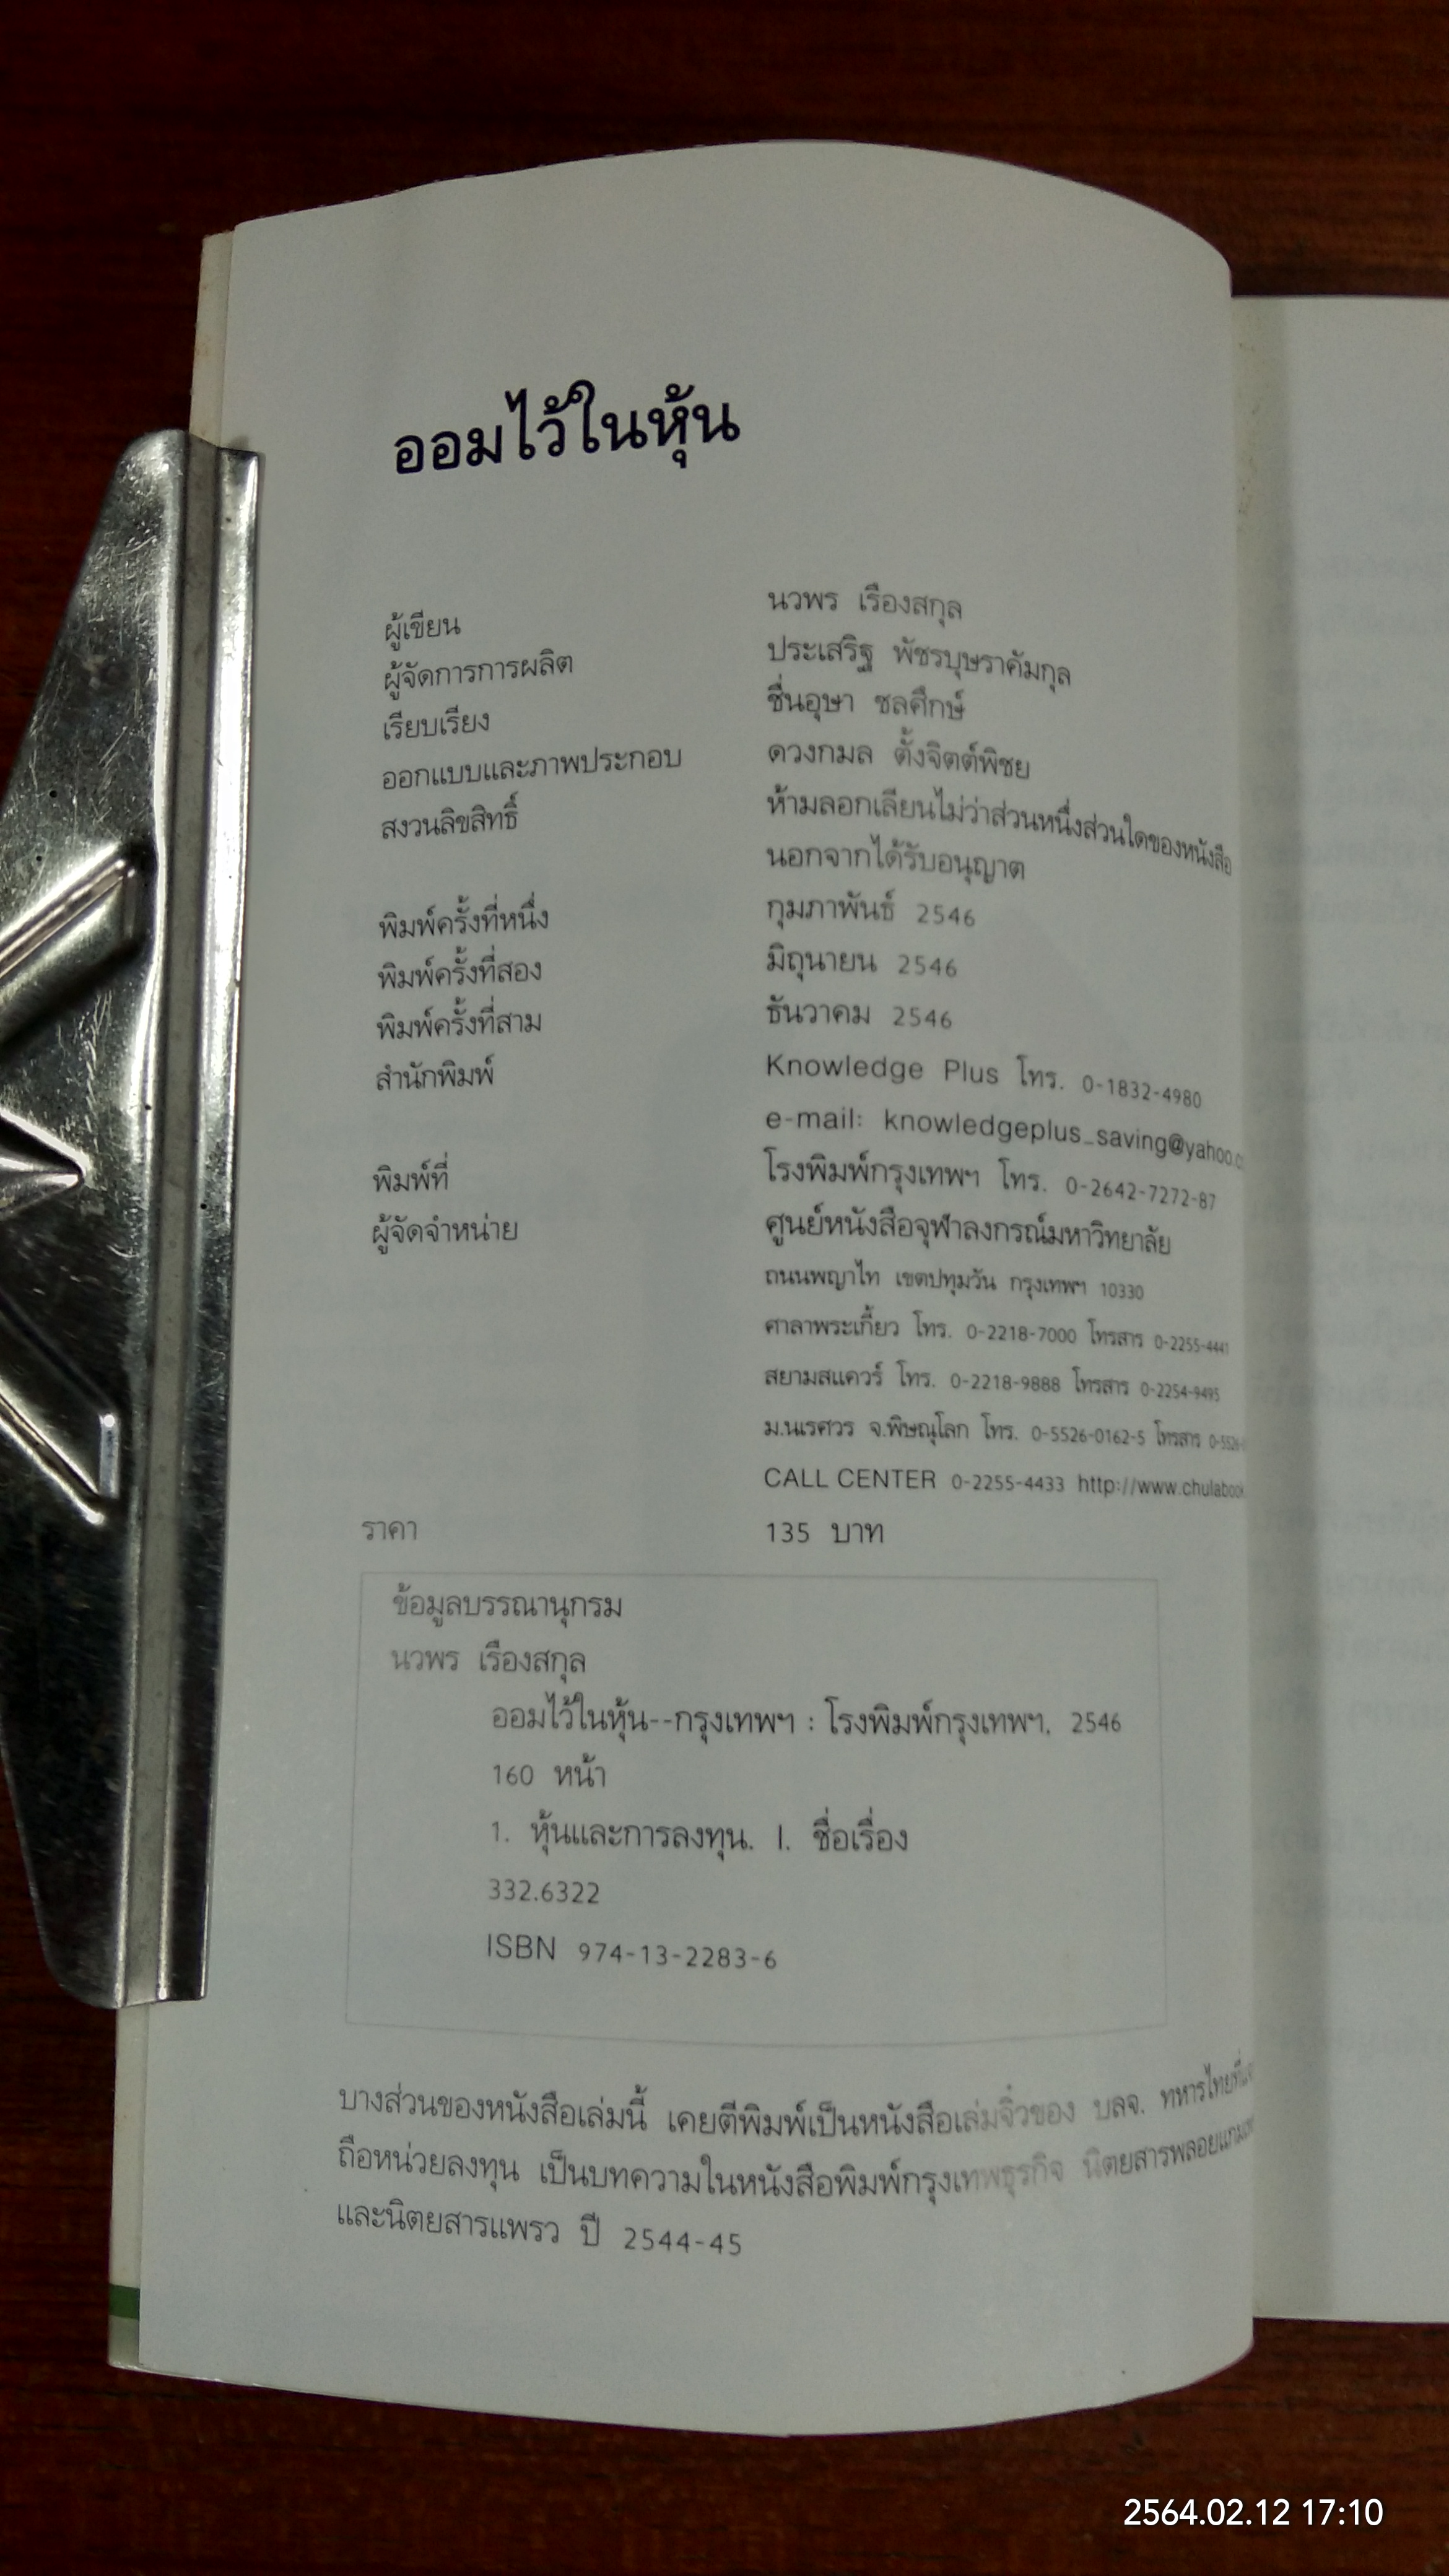 ออมไว้ในหุ้น
ผู้เขียน นวพร เรืองสกุล
ผู้จัดการการผลิต ประเสริฐ พัชรบุษราคัมกุล
เรียบเรียง ชื่นอุษา ชลศึกษ์
ออกแบบและภาพประกอบ ดวงกมล ตั้งจิตต์พิชย
สงวนลิขสิทธิ์ ห้ามลอกเลียนไม่ว่าส่วนหนึ่งส่วนใดของหนังสือ
นอกจากได้รับอนุญาต
พิมพ์ครั้งที่หนึ่ง กุมภาพันธ์ 2546
พิมพ์ครั้งที่สอง มิถุนายน 2546
พิมพ์ครั้งที่สาม ธันวาคม 2546
สำนักพิมพ์ Knowledge Plus โทร. 0-1832-4980
e-mail: knowledgeplus_saving@yahoo.c
พิมพ์ที่ โรงพิมพ์กรุงเทพฯ โทร. 0-2642-7272-87
ผู้จัดจำหน่าย ศูนย์หนังสือจุฬาลงกรณ์มหาวิทยาลัย
ถนนพญาไท เขตปทุมวัน กรุงเทพฯ 10330
ศาลาพระเกี้ยว โทร. 0-2218-7000 โทรสาร 0-2255-4441
สยามสแควร์ โทร. 0-2218-9888 โทรสาร 0-2254-9495
ม.นเรศวร จ.พิษณุโลก โทร. 0-5526-0162-5 โทรสาร 0-5526-
CALL CENTER 0-2255-4433 http://www.chulabook
ราคา 135 บาท
ข้อมูลบรรณานุกรม
นวพร เรืองสกุล
ออมไว้ในหุ้น--กรุงเทพฯ : โรงพิมพ์กรุงเทพฯ. 2546
160 หน้า
1. หุ้นและการลงทุน. I. ชื่อเรื่อง
332.6322
ISBN 974-13-2283-6
บางส่วนของหนังสือเล่มนี้ เคยตีพิมพ์เป็นหนังสือเล่มจิ๋วของ บลจ. ทหารไทย
ถือหน่วยลงทุน เป็นบทความในหนังสือพิมพ์กรุงเทพธุรกิจ นิตยสารพลอยแกมเพชร
และนิตยสารแพรว ปี 2544-45
2564.02.12 17:10